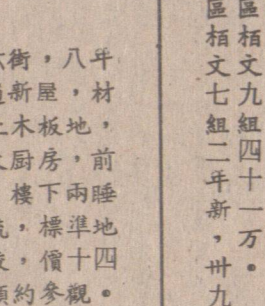 區栢文九組四十一萬。
區栢文七組二年新，卅九
街，八年
新屋，材
木板地，
厨房，前
樓下兩睡
，標準地
，價十四
約參觀。